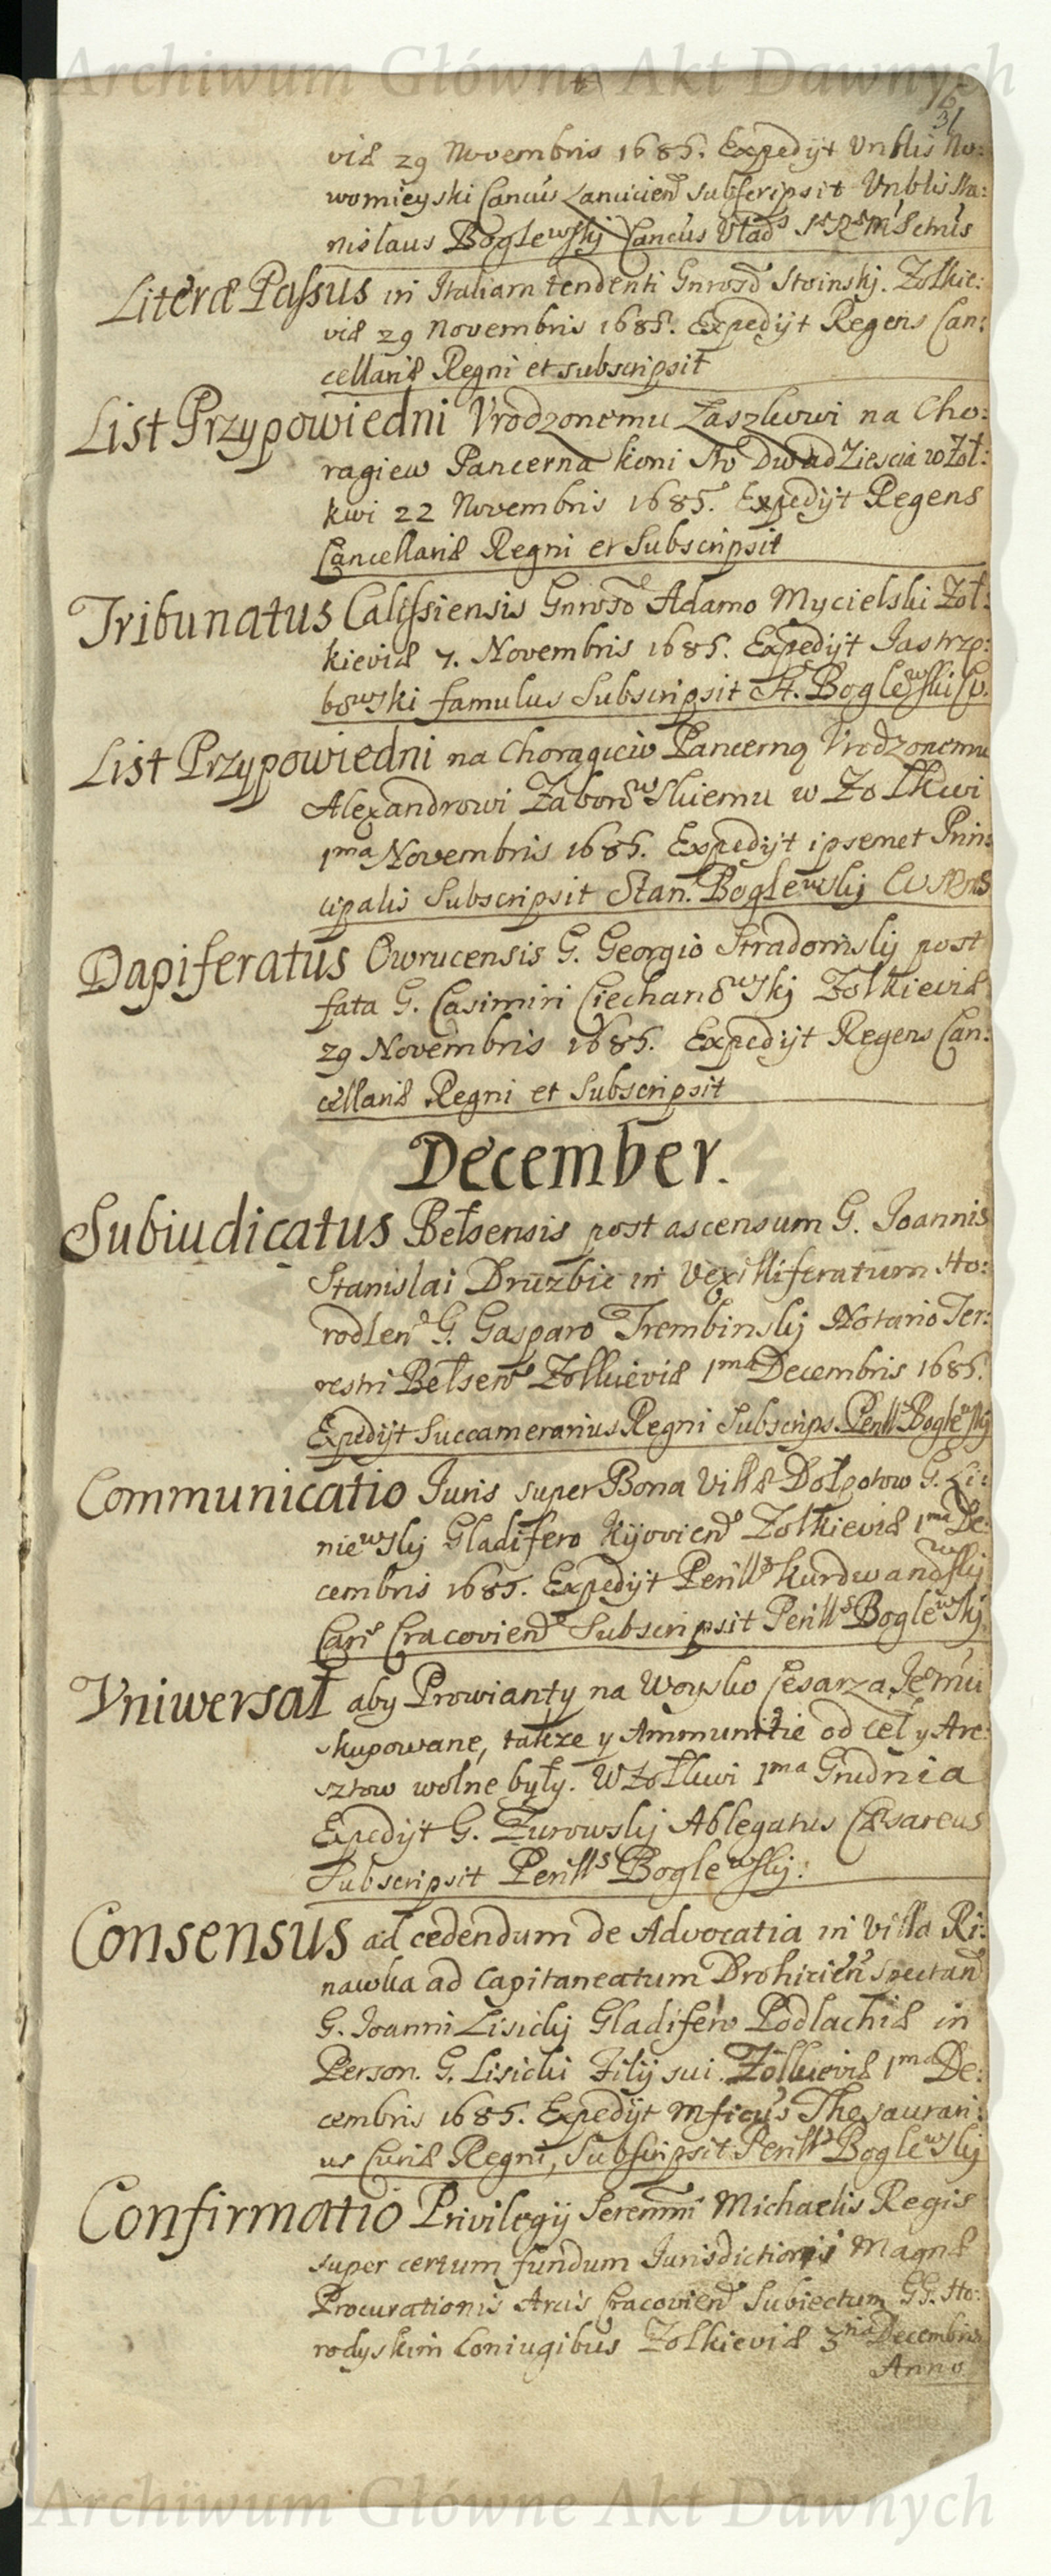 Archiwum Główne Akt Dawnych
31
viæ 29 Novembris 1685. Expedijt Vnblis No:
womieyski Cancus Lanucien subscripsit Vnblis Sta:
nislaus Boglewskij Cancus Vlad
Literæ Passus in Italiam tendenti Gnroso Stoinskj. Zolkie:
viæ 29 Novembris 1685. Expedijt Regens Can:
cellariæ Regni et subscripsit
List Przypowiedni Vrodzonemu Łaszlwwi na Cho:
ragiew Pancerna koni Sto Dwadziescia w Żoł:
kwi 22 Novembris 1685. Expedijt Regens
Cancellariæ Regni et Subscripsit
Tribunatus Calissiensis Gnroso Adamo Mycielski Żoł:
kieviæ 7. Novembris 1685. Expedijt Jastrzę:
bowski famulus Subscripsit St. Boglewski
List Przypowiedni na Choragiew Pancerną Vrodzonemu
Alexandrowi Zaborowskiemu w Zołkwi
1ma Novembris 1685. Expedijt ipsemet Prin:
cipalis Subscripsit Stan. Boglewskij
Dapiferatus Owrucensis G. Georgio Stradomskij post
fata G. Casimiri Ciechanowskj Zołkieviæ
29 Novembris 1685. Expedijt Regens Can:
cellariæ Regni et Subscripsit
December.
Subiudicatus Bełsensis post ascensum G. Joannis
Stanislai Druzbic in Vexilliferatum Ho:
rodlen G. Gasparo Trembinskij Notario Ter:
restri Bełsen Zołkieviæ 1ma Decembris 1685.
Expedijt Succamerarius Regni Subscrips. Perills Boglewskij
Communicatio Juris super Bona Villæ Dołpotow G. Li:
niewskij Gladifero Kijovien Zołkieviæ 1ma De:
cembris 1685. Expedijt Perills Kurdwanowskij
Can Cracovien Subscripsit Perills Boglewskij
Vniwersał aby Prowianty na Woysko Cesarza Jemci
skupowane, takze y Ammunitie od ceł y Are:
sztow wolne były. W Zołkwi 1ma Grudnia
Expedijt G. Zurowskij Ablegatus Cæsareus
Subscripsit Perills Boglewskij.
Consensus ad cedendum de Advocatia in Villa Ri:
nawka ad Capitaneatum Drohicien spectan
G. Joanni Lisickij Gladifero Podlachiæ in
Person. G. Lisicki Filij sui. Zołkieviæ 1ma De:
cembris 1685. Expedijt Mficus Thesaurari:
us Curiæ Regni, Subscripsit Perills Boglewskij
Confirmatio Privilegij Serenmi Michaelis Regis
super certum fundum Jurisdictionis Magnæ
Procurationis Arcis Cracovien Subiectum GG. Ho:
rodyskim Coniugibus Zołkieviæ 3tia Decembris
Anno
Archiwum Główne Akt Dawnych